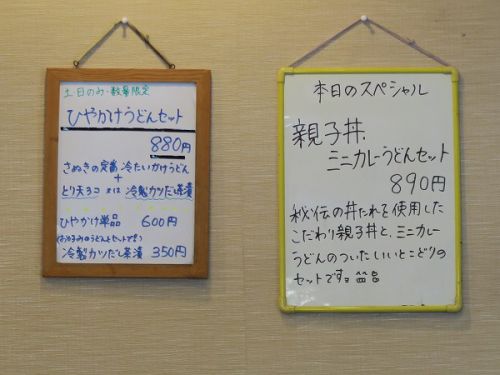 土日のみ・数量限定
ひやかけうどんセット
880円
さぬきの定番 冷たいかけうどん
+
とり天3コ または 冷製カツだし茶漬
ひやかけ単品 600円
冷製カツだし茶漬 350円
本日のスペシャル
親子丼、
ミニカレーうどんセット
890円
秘伝の丼たれを使用した
こだわり親子丼と、ミニカレー
うどんのついたいいとこどりの
セットです。